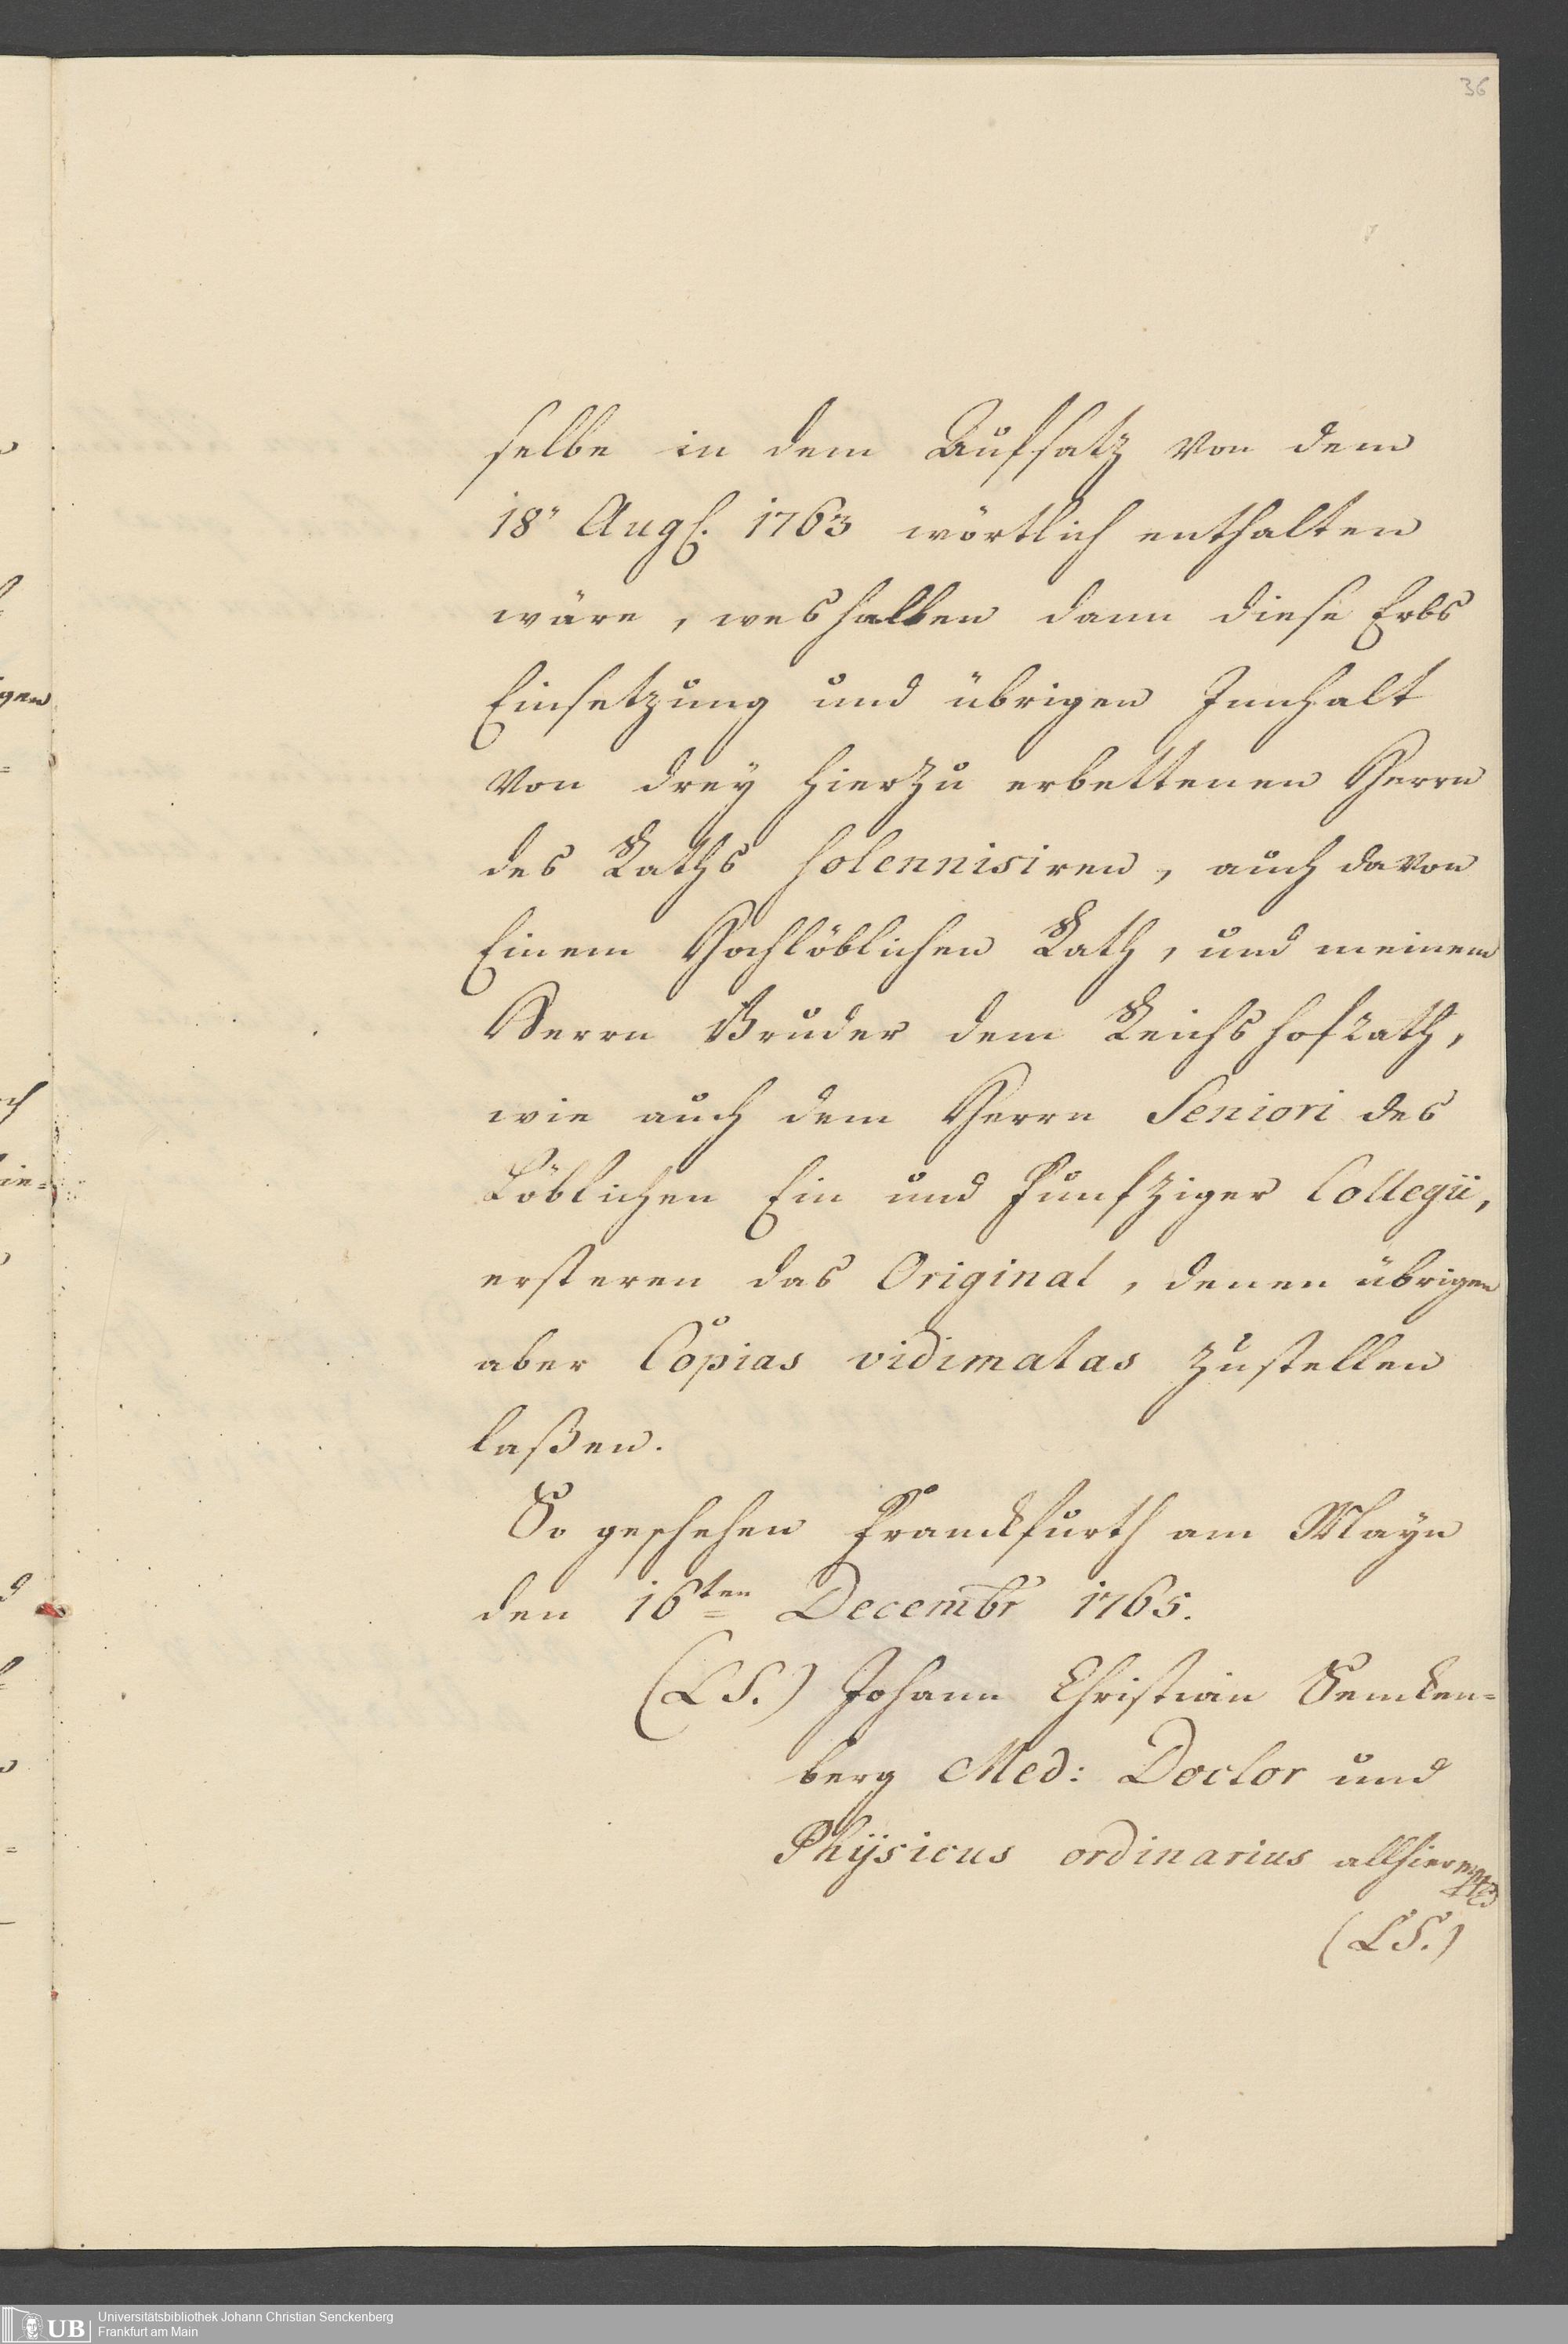 36
selbe in dem Aufsatz von dem
18" Aug. 1763 wörtlich enthalten
wäre, weshalben dann diese Erbs
Einsetzung und übrigen Innhalt
von drey hierzu erbettenen Herrn
des Raths solennisiren, auch davon
Einem Hochlöblichen Rath, und meinem
Herrn Bruder dem Reichshofrath,
wie auch dem Herrn Seniori des
Löblichen Ein und Funfziger Collegii,
ersteren das Original, denen übrigen
aber Copias vidimatas zustellen
laßen.
So geschehen Franckfurth am Mayn
den 16ten Decembr 1765.
(LS.) Johann Christian Sencken=
berg Med: Doctor und
Physicus ordinarius allhier mpp
(LS.)
UB Universitätsbibliothek Johann Christian Senckenberg
Frankfurt am Main